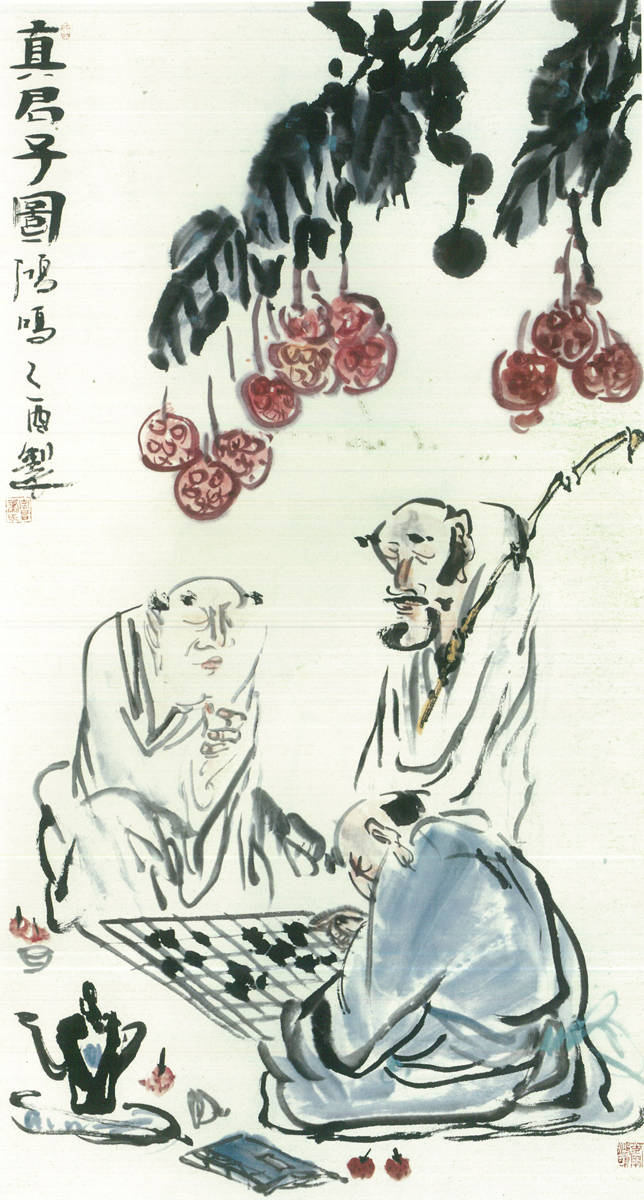 真君子圖鴻鳴乙酉製